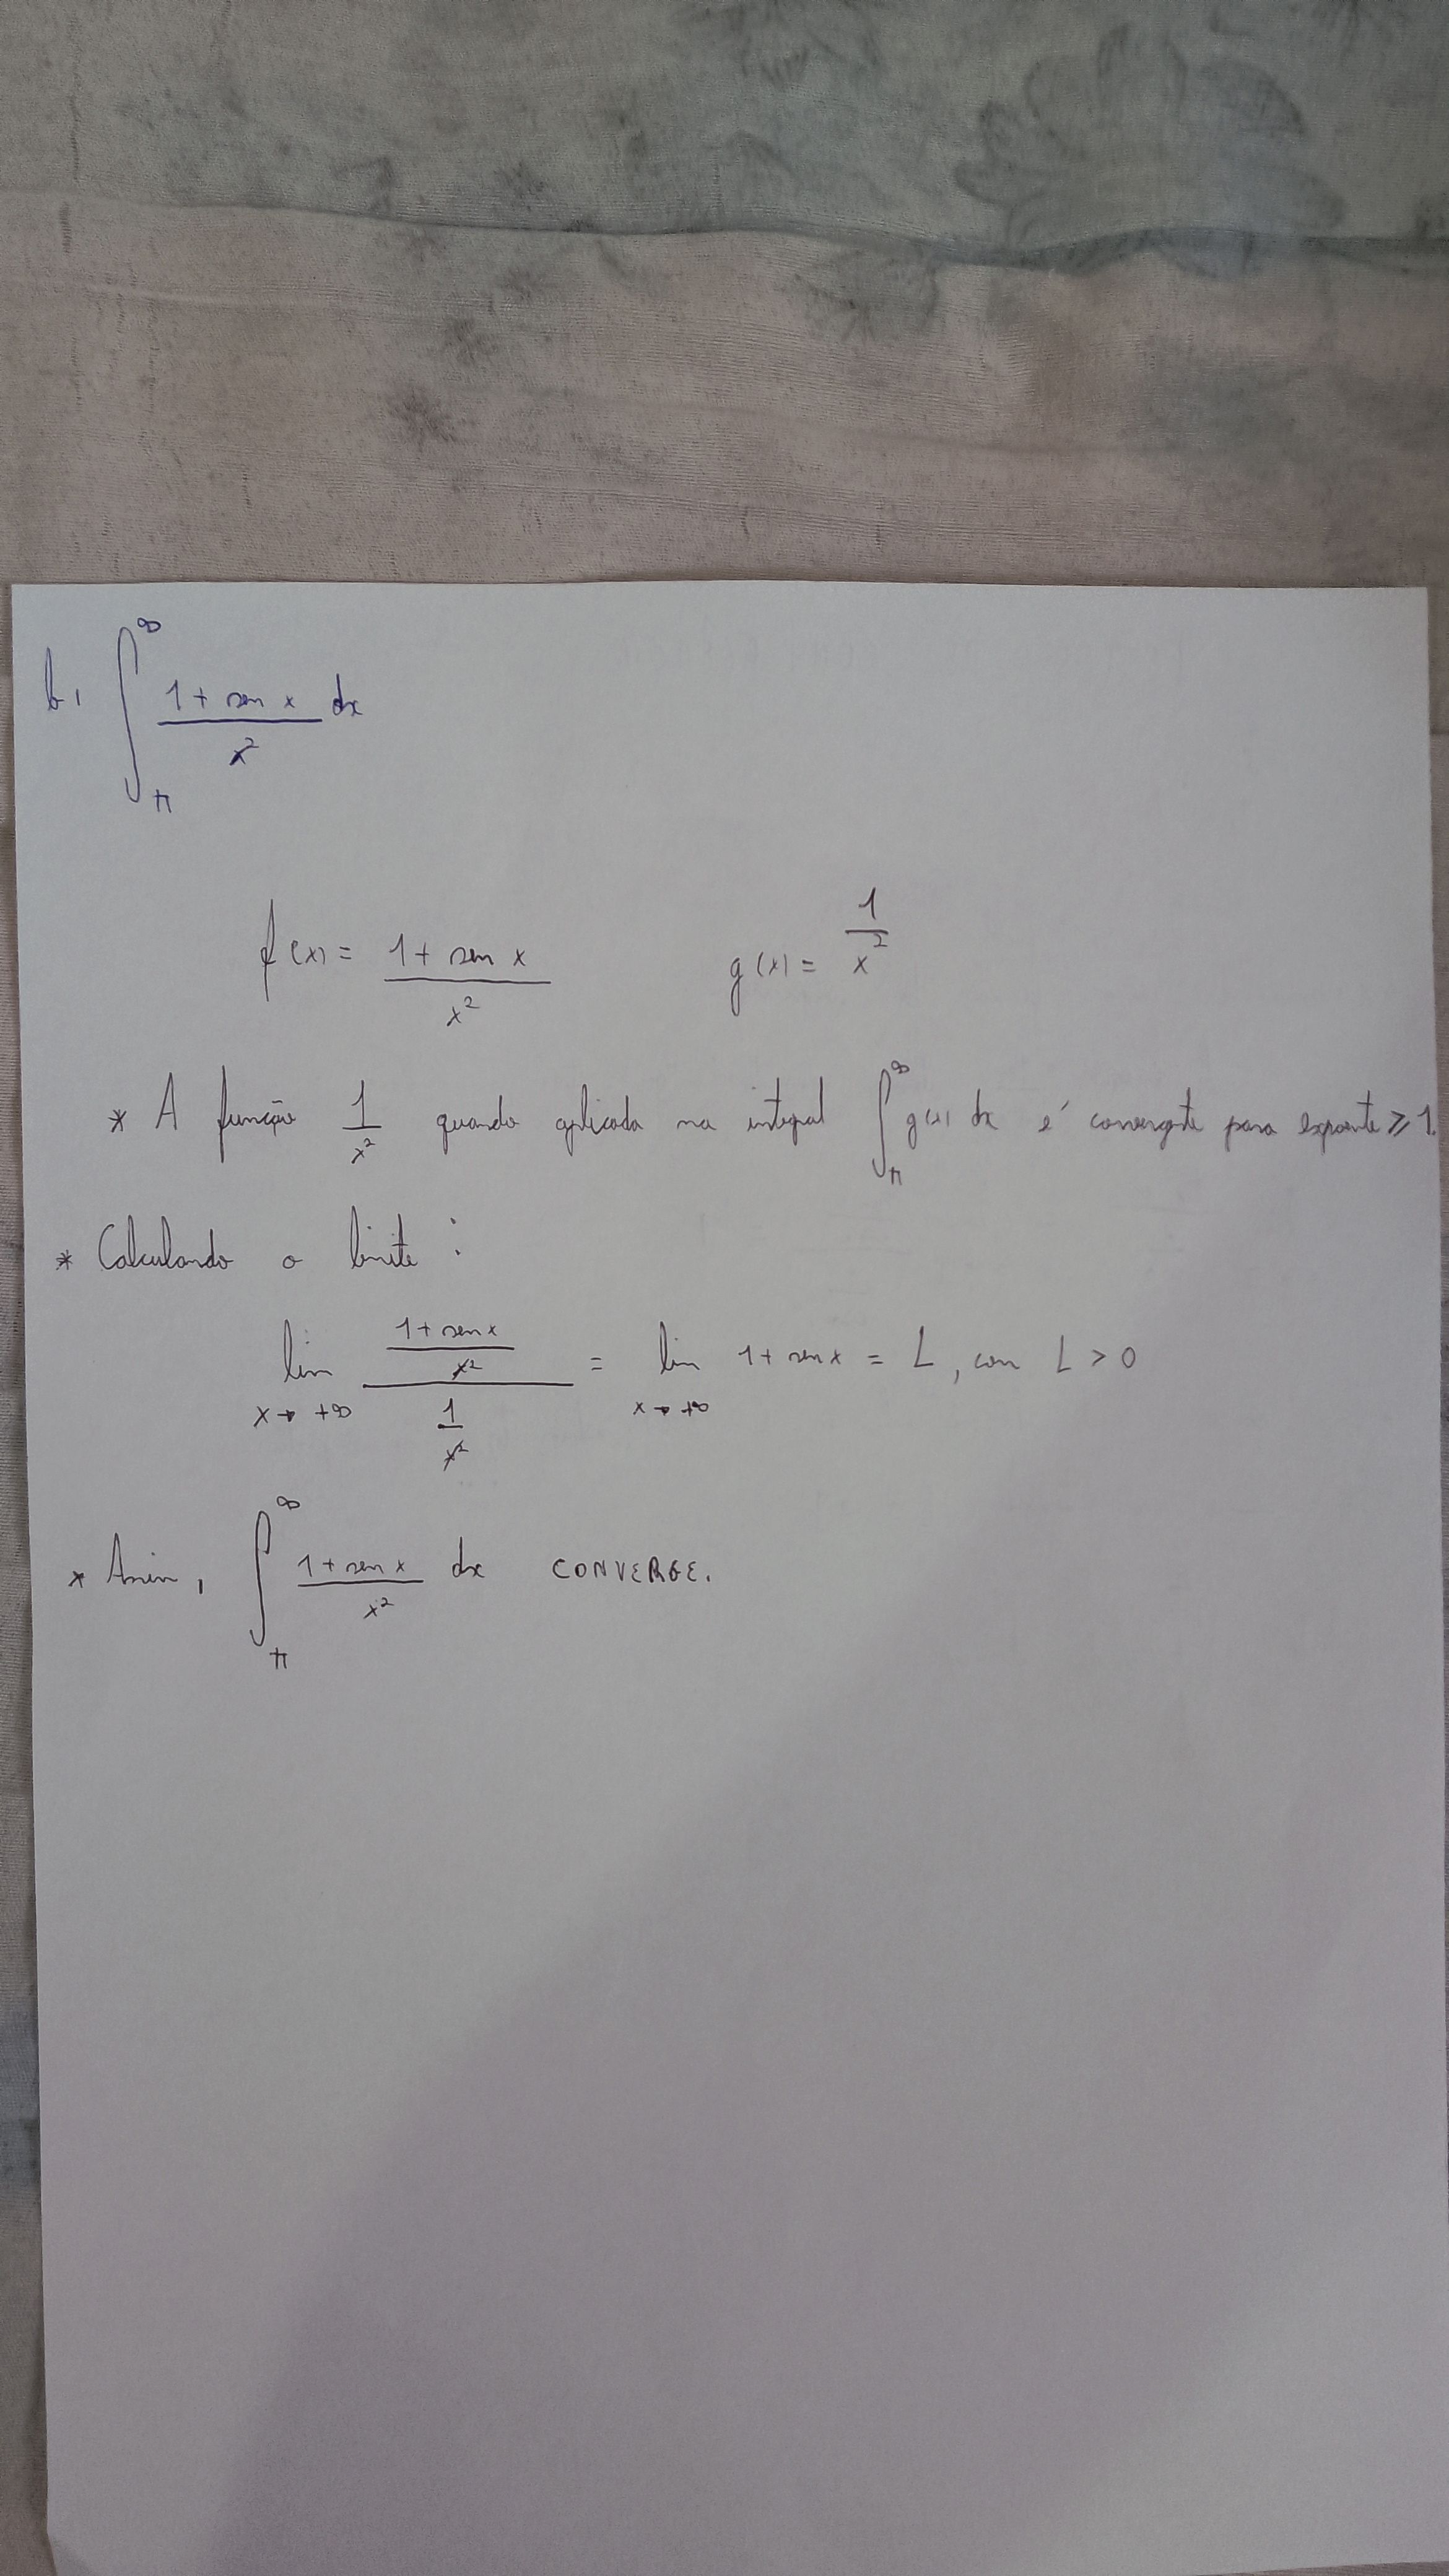 b, ∫_π^∞ (1 + sen x)/x² dx
f(x) = (1 + sen x)/x² g(x) = 1/x²
* A função 1/x² quando aplicada na integral ∫_π^∞ g(x) dx é convergente para expoente ≥ 1.
* Calculando o limite :
lim x→+∞ ((1 + sen x)/x²)/(1/x²) = lim x→+∞ 1 + sen x = L, com L > 0
* Assim, ∫_π^∞ (1 + sen x)/x² dx CONVERGE.